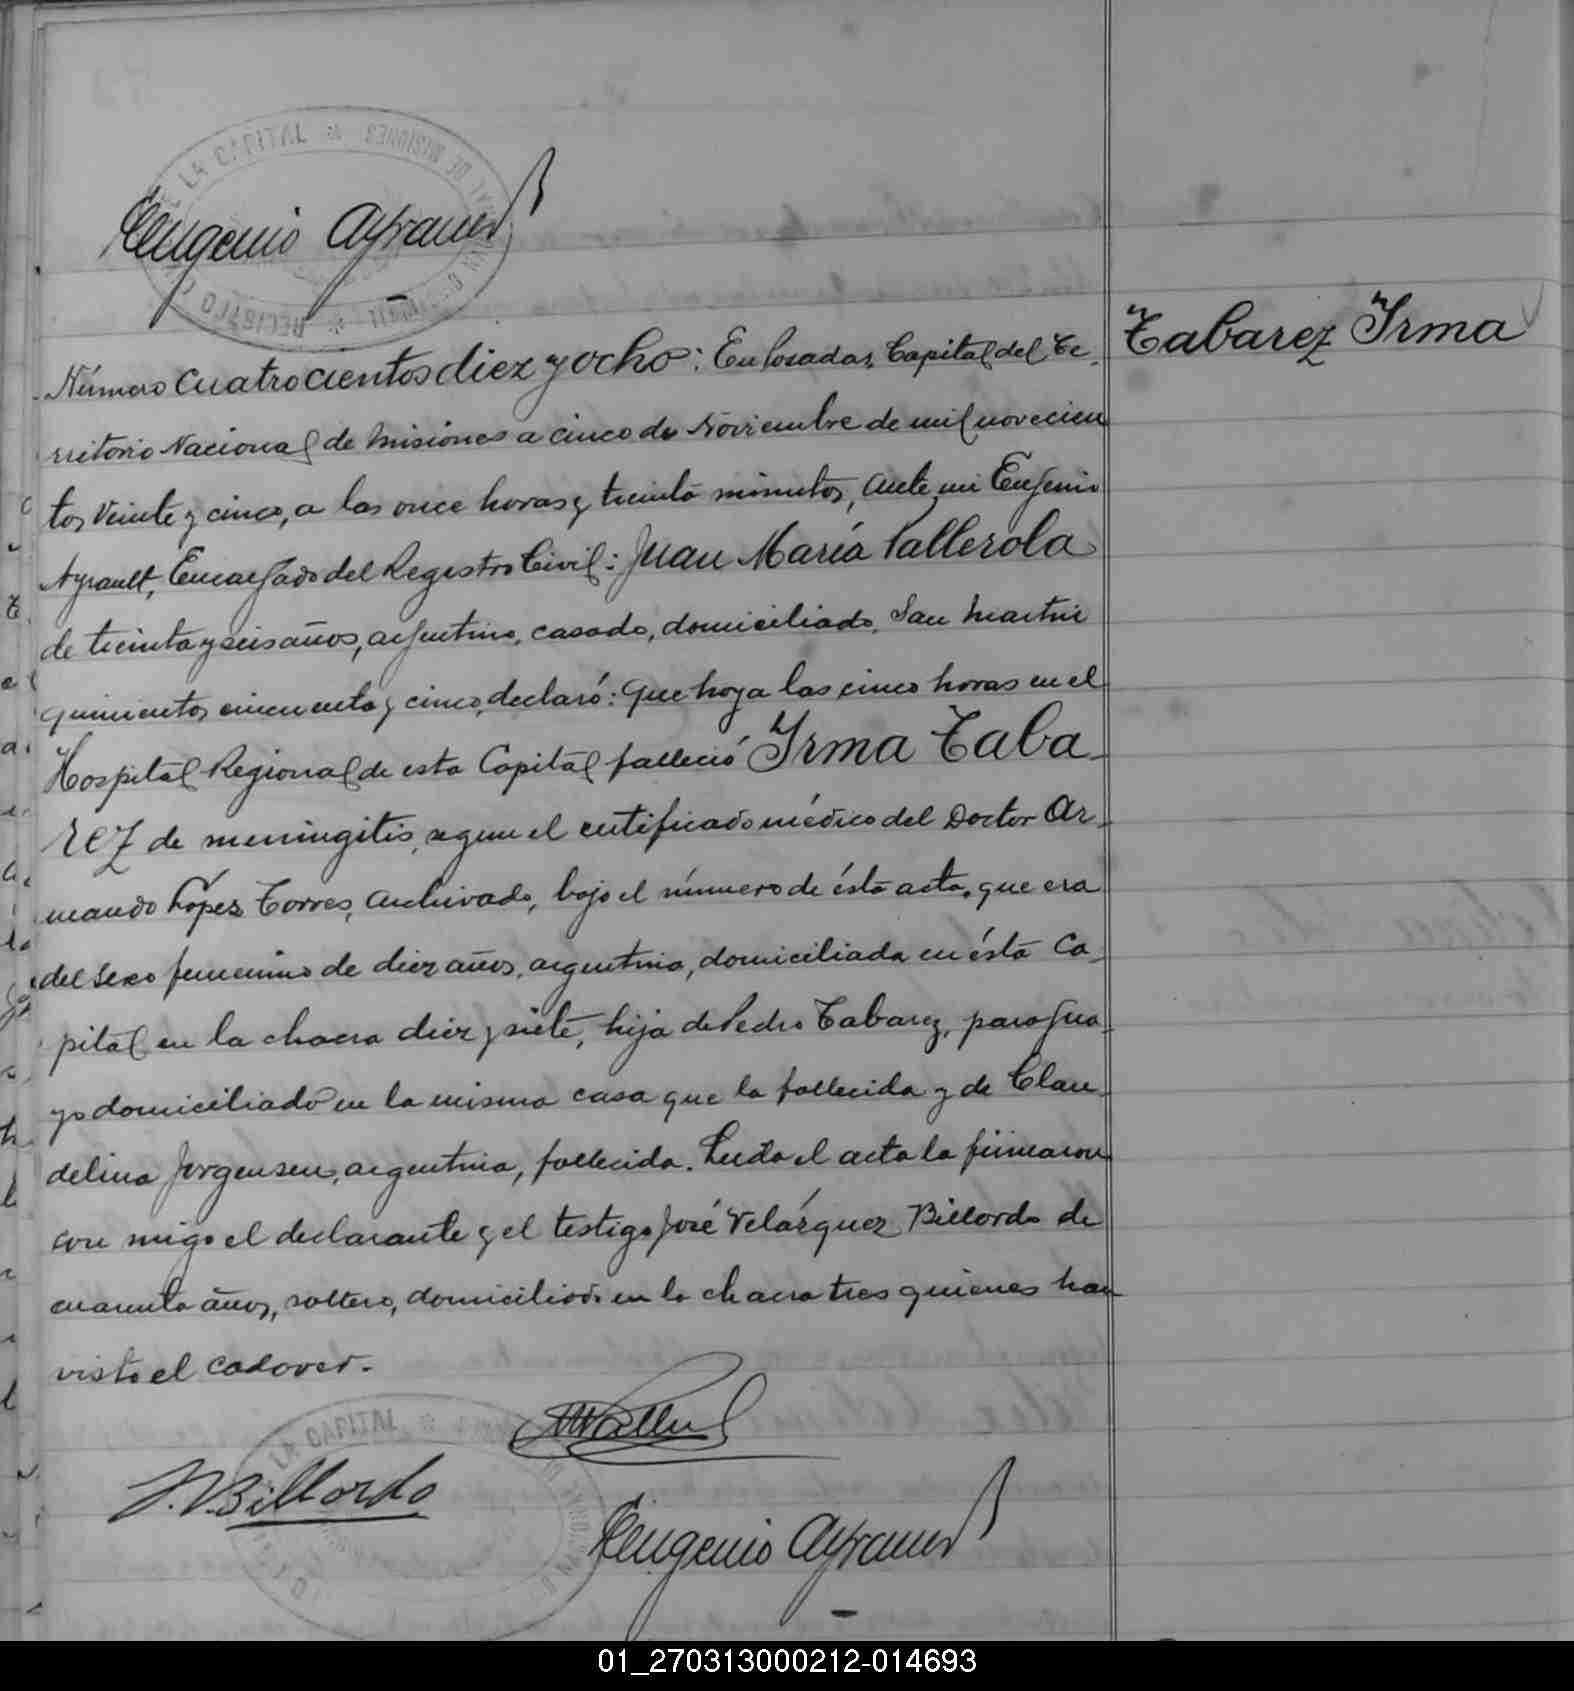 LA CAPITAL * MISIONES DE
Eugenio Ayrault
REGISTRO CIVIL
Tabarez Irma
Número cuatrocientos diez y ocho: En Posadas, Capital del Te-
rritorio Nacional de Misiones a cinco de Noviembre de mil novecien
tos veinte y cinco, a las once horas y treinta minutos, ante mi Eugenio
Ayrault, Encargado del Registro Civil: Juan María Pallerola
de treinta y seis años, argentino, casado, domiciliado, San Martin
quinientos cincuenta y cinco, declaró: Que hoy a las cinco horas en el
Hospital Regional de esta Capital falleció Irma Taba-
rez de meningitis, segun el certificado médico del Doctor Ar-
mando López Torres, archivado, bajo el número de ésta acta, que era
del sexo femenino de diez años, argentina, domiciliada en ésta Ca-
pital en la chacra diez y siete, hija de Pedro Tabarez, paragua-
yo domiciliado en la misma casa que la fallecida y de Clau-
delina Jorgensen, argentina, fallecida. Leida el acta la firmaron
con migo el declarante y el testigo José Velázquez Billordo de
cuarenta años, soltero, domiciliado en la chacra tres quienes han
visto el cadaver.-
LA CAPITAL *
J. V. Billordo
Eugenio Ayrault
01_270313000212-014693